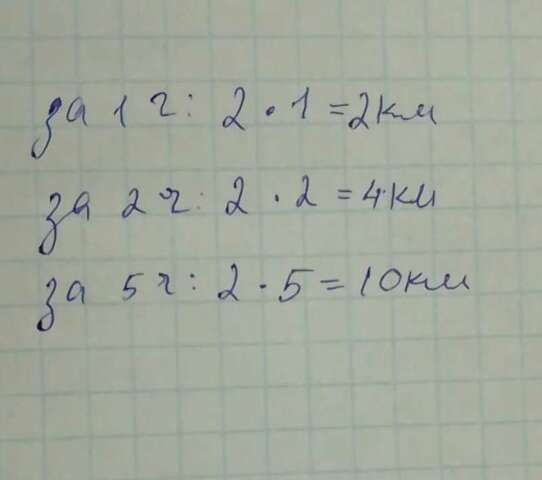 за 1 ч: 2 · 1 = 2 км
за 2 ч: 2 · 2 = 4 км
за 5 ч: 2 · 5 = 10 км